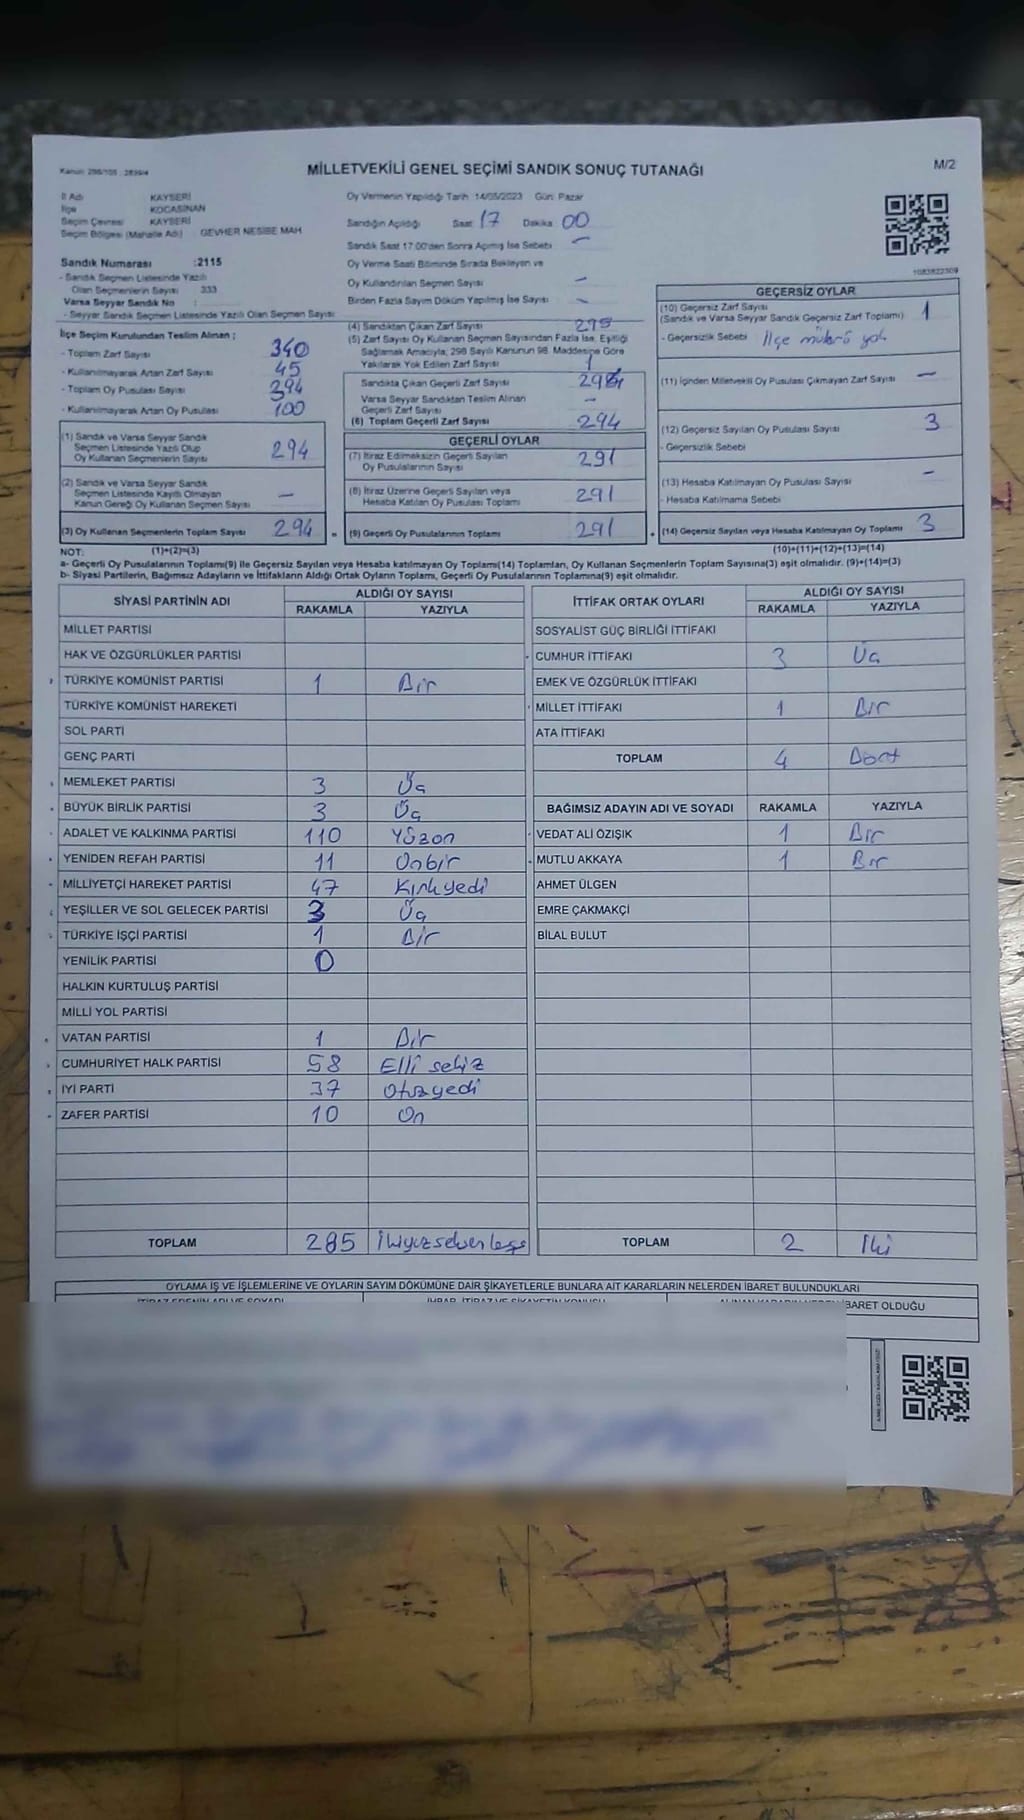 Kanun: 298/105 : 2839/4
MİLLETVEKİLİ GENEL SEÇİMİ SANDIK SONUÇ TUTANAĞI
M/2
İl Adı KAYSERİ
İlçe KOCASİNAN
Seçim Çevresi KAYSERİ
Seçim Bölgesi (Mahalle Adı) GEVHER NESİBE MAH
Sandık Numarası :2115
- Sandık Seçmen Listesinde Yazılı
Olan Seçmenlerin Sayısı 333
Varsa Seyyar Sandık No :
- Seyyar Sandık Seçmen Listesinde Yazılı Olan Seçmen Sayısı
Oy Vermenin Yapıldığı Tarih :14/05/2023 Gün: Pazar
Sandığın Açıldığı Saat 17 Dakika 00
Sandık Saat 17:00'den Sonra Açımış İse Sebebi –
Oy Verme Saati Bitiminde Sırada Bekleyen ve
Oy Kullandırılan Seçmen Sayısı –
Birden Fazla Sayım Döküm Yapılmış İse Sayısı –
1083822309
İlçe Seçim Kurulundan Teslim Alınan ;
- Toplam Zarf Sayısı 340
- Kullanılmayarak Artan Zarf Sayısı 45
- Toplam Oy Pusulası Sayısı 394
- Kullanılmayarak Artan Oy Pusulası 100
(1) Sandık ve Varsa Seyyar Sandık
Seçmen Listesinde Yazılı Olup
Oy Kullanan Seçmenlerin Sayısı 294
(2) Sandık ve Varsa Seyyar Sandık
Seçmen Listesinde Kayıtlı Olmayan
Kanun Gereği Oy Kullanan Seçmen Sayısı –
(3) Oy Kullanan Seçmenlerin Toplam Sayısı 294 =
(4) Sandıktan Çıkan Zarf Sayısı 295
(5) Zarf Sayısı Oy Kullanan Seçmen Sayısından Fazla İse, Eşitliği
Sağlamak Amacıyla, 298 Sayılı Kanunun 98. Maddesine Göre
Yakılarak Yok Edilen Zarf Sayısı 1
Sandıkta Çıkan Geçerli Zarf Sayısı 294
Varsa Seyyar Sandıktan Teslim Alınan
Geçerli Zarf Sayısı –
(6) Toplam Geçerli Zarf Sayısı 294
GEÇERLİ OYLAR
(7) İtiraz Edilmeksizin Geçerli Sayılan
Oy Pusulalarının Sayısı 291
(8) İtiraz Üzerine Geçerli Sayılan veya
Hesaba Katılan Oy Pusulası Toplamı 291
(9) Geçerli Oy Pusulalarının Toplamı 291 +
GEÇERSİZ OYLAR
(10) Geçersiz Zarf Sayısı
(Sandık ve Varsa Seyyar Sandık Geçersiz Zarf Toplamı) 1
- Geçersizlik Sebebi İlçe mührü yok
(11) İçinden Milletvekili Oy Pusulası Çıkmayan Zarf Sayısı –
(12) Geçersiz Sayılan Oy Pusulası Sayısı 3
- Geçersizlik Sebebi
(13) Hesaba Katılmayan Oy Pusulası Sayısı –
- Hesaba Katılmama Sebebi
(14) Geçersiz Sayılan veya Hesaba Katılmayan Oy Toplamı 3
NOT: (1)+(2)=(3) (10)+(11)+(12)+(13)=(14)
a- Geçerli Oy Pusulalarının Toplamı(9) ile Geçersiz Sayılan veya Hesaba katılmayan Oy Toplamı(14) Toplamları, Oy Kullanan Seçmenlerin Toplam Sayısına(3) eşit olmalıdır. (9)+(14)=(3)
b- Siyasi Partilerin, Bağımsız Adayların ve İttifakların Aldığı Ortak Oyların Toplamı, Geçerli Oy Pusulalarının Toplamına(9) eşit olmalıdır.
SİYASİ PARTİNİN ADI ALDIĞI OY SAYISI
RAKAMLA YAZIYLA
MİLLET PARTİSİ
HAK VE ÖZGÜRLÜKLER PARTİSİ
TÜRKİYE KOMÜNİST PARTİSİ 1 Bir
TÜRKİYE KOMÜNİST HAREKETİ
SOL PARTİ
GENÇ PARTİ
MEMLEKET PARTİSİ 3 Üç
BÜYÜK BİRLİK PARTİSİ 3 Üç
ADALET VE KALKINMA PARTİSİ 110 Yüzon
YENİDEN REFAH PARTİSİ 11 Onbir
MİLLİYETÇİ HAREKET PARTİSİ 47 Kırkyedi
YEŞİLLER VE SOL GELECEK PARTİSİ 3 Üç
TÜRKİYE İŞÇİ PARTİSİ 1 Bir
YENİLİK PARTİSİ 0
HALKIN KURTULUŞ PARTİSİ
MİLLİ YOL PARTİSİ
VATAN PARTİSİ 1 Bir
CUMHURİYET HALK PARTİSİ 58 Elli sekiz
İYİ PARTİ 37 Otuzyedi
ZAFER PARTİSİ 10 On
TOPLAM 285 İkiyüzseksenbeş
İTTİFAK ORTAK OYLARI ALDIĞI OY SAYISI
RAKAMLA YAZIYLA
SOSYALİST GÜÇ BİRLİĞİ İTTİFAKI
CUMHUR İTTİFAKI 3 Üç
EMEK VE ÖZGÜRLÜK İTTİFAKI
MİLLET İTTİFAKI 1 Bir
ATA İTTİFAKI
TOPLAM 4 Dört
BAĞIMSIZ ADAYIN ADI VE SOYADI RAKAMLA YAZIYLA
VEDAT ALİ ÖZIŞIK 1 Bir
MUTLU AKKAYA 1 Bir
AHMET ÜLGEN
EMRE ÇAKMAKÇİ
BİLAL BULUT
TOPLAM 2 İki
OYLAMA İŞ VE İŞLEMLERİNE VE OYLARIN SAYIM DÖKÜMÜNE DAİR ŞİKAYETLERLE BUNLARA AİT KARARLARIN NELERDEN İBARET BULUNDUKLARI
İTİRAZ EDENİN ADI VE SOYADI İHBAR, İTİRAZ VE ŞİKAYETİN KONUSU ALINAN KARARIN NEDEN İBARET OLDUĞU